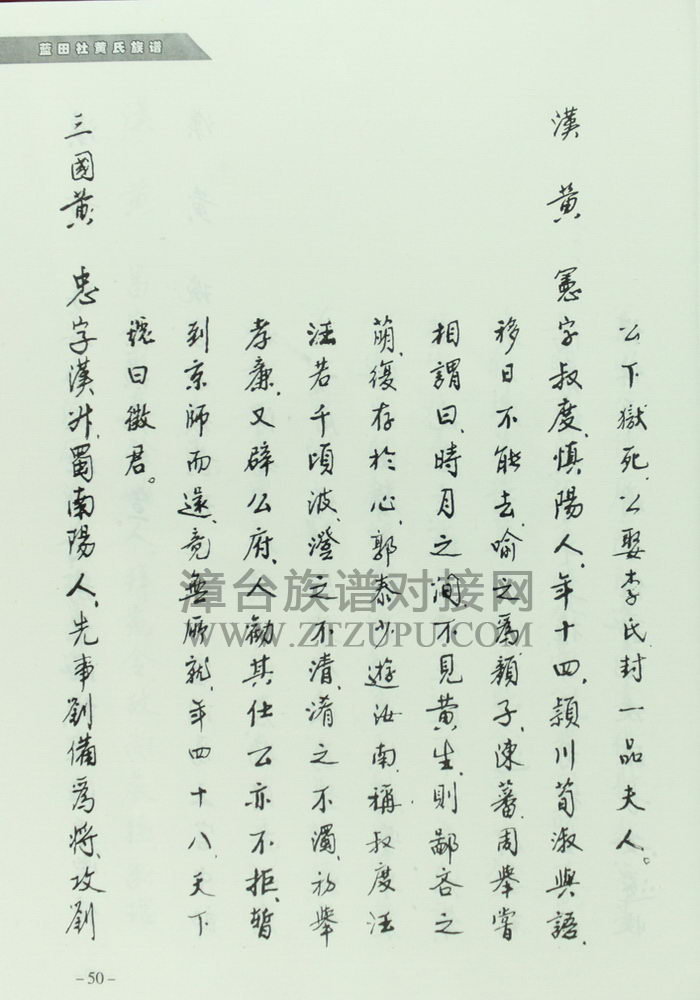 蓝田社黄氏族谱
公下獄死，公娶李氏封一品夫人。
漢 黄 憲字叔度，慎陽人，年十四，潁川荀淑與語，
移日不能去，喻之爲顏子，陳蕃周舉嘗
相謂曰，時月之间，不見黄生，則鄙吝之
萌，復存於心，郭泰少遊汝南，稱叔度汪
汪若千頃波，澄之不清，淆之不濁，初舉
孝廉，又辟公府，人勸其仕公亦不拒，暫
到京師而還，竟無所就，年四十八，天下
號曰徵君。
三國黄 忠字漢升，蜀南陽人，先事劉備爲将，攻劉
漳台族谱对接网
WWW.ZTZUPU.COM
-50-